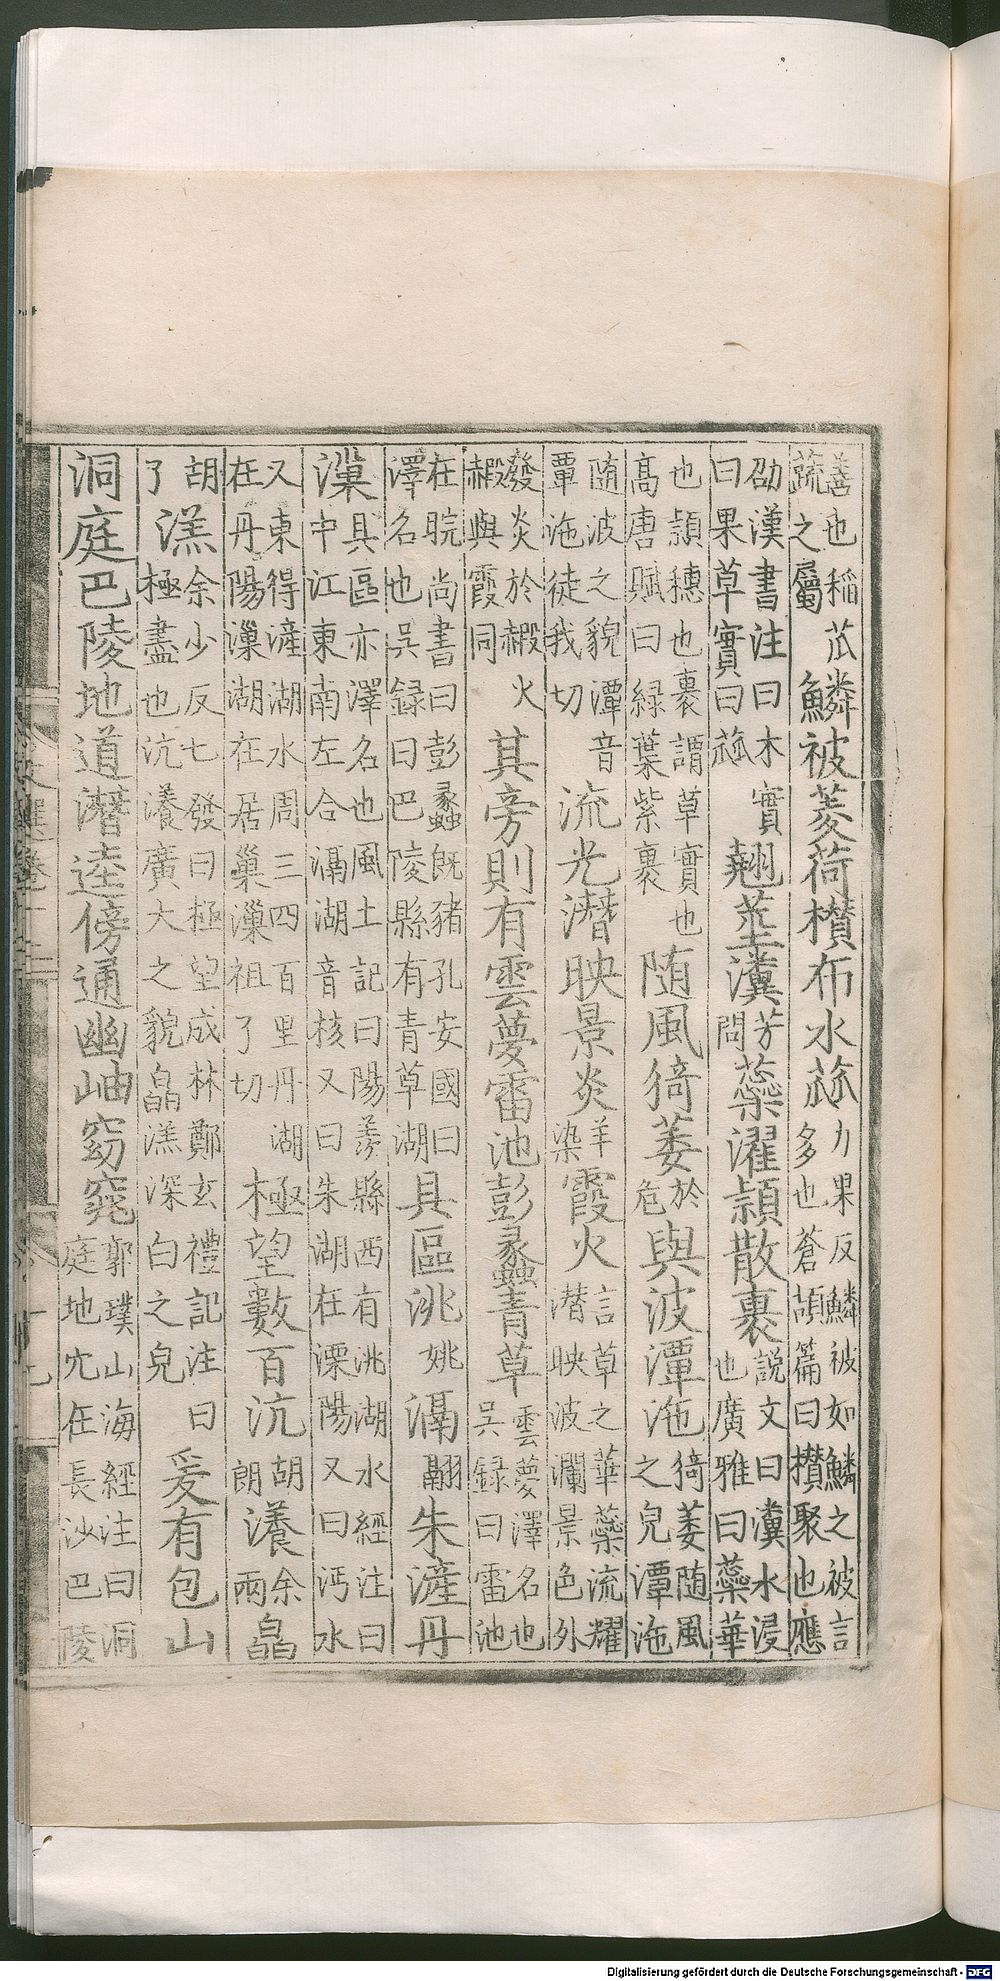 善也稲苽
蔬之屬
鱗被菱荷攢布水蓏
力果反鱗被如鱗之被言
多也蒼頡篇曰攢聚也應
劭漢書注曰木實
曰果草實曰蓏
翹莖瀵
芳
問
蘂濯穎散裹
説文曰瀵水浸
也廣雅曰蘂華
也穎穗也裹謂草實也
高唐賦曰緑葉紫裹
随風猗萎
於
危
與波潭沲
猗萎随風
之皃潭沲
随波之貌潭音
覃沲徒我切
流光潛映景炎
羊
染
霞火
言草之華蘂流耀
潛映波瀾景色外
發炎於赮火
赮與霞同
其旁則有雲夢雷池彭蠡青草
雲夢澤名也
吳録曰雷池
在晥尚書曰彭蠡既豬孔安國曰
澤名也吳録曰巴陵縣有青草湖
具區洮
姚
滆
翮
朱滻丹
漅
具區亦澤名也風土記曰陽羨縣西有洮湖水經注曰
中江東南左合滆湖音核又曰朱湖在溧陽又曰沔水
又東得滻湖水周三四百里丹湖
在丹陽漅湖在居巢漅祖了切
極望數百沆
胡
朗
瀁
余
兩
皛
胡
了
溔
余少反七發曰極望成林鄭玄禮記注曰
極盡也沆瀁廣大之貌皛溔深白之皃
爰有包山
洞庭巴陵地道潛逵傍通幽岫窈窕
郭璞山海經注曰洞
庭地穴在長沙巴陵
Digitalisierung gefördert durch die Deutsche Forschungsgemeinschaft - DFG